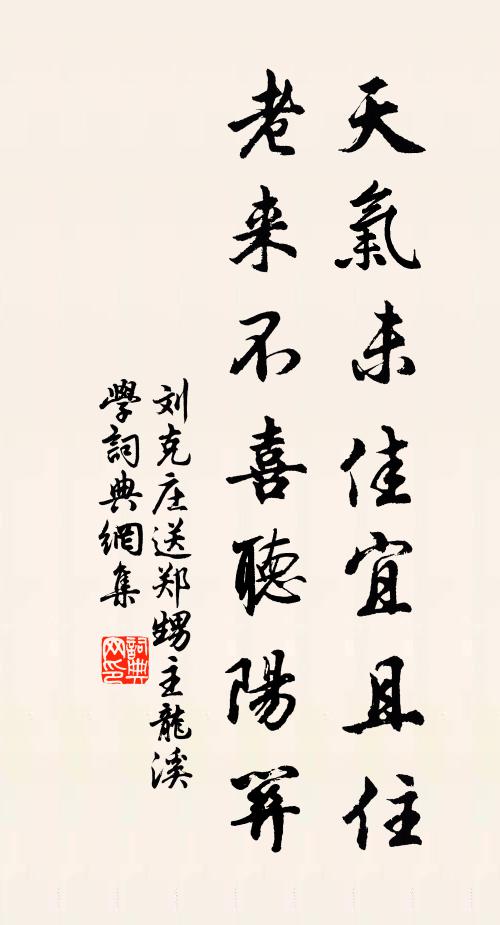 天氣未佳宜且住
老来不喜聽陽關
刘克庄送郑甥主龍溪
學詞典網集
詞典网印